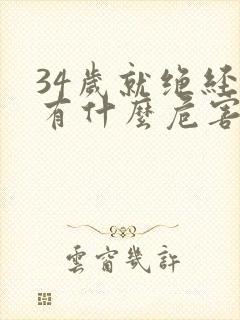 34歲就绝経
有什麼危害
雲窗幾許